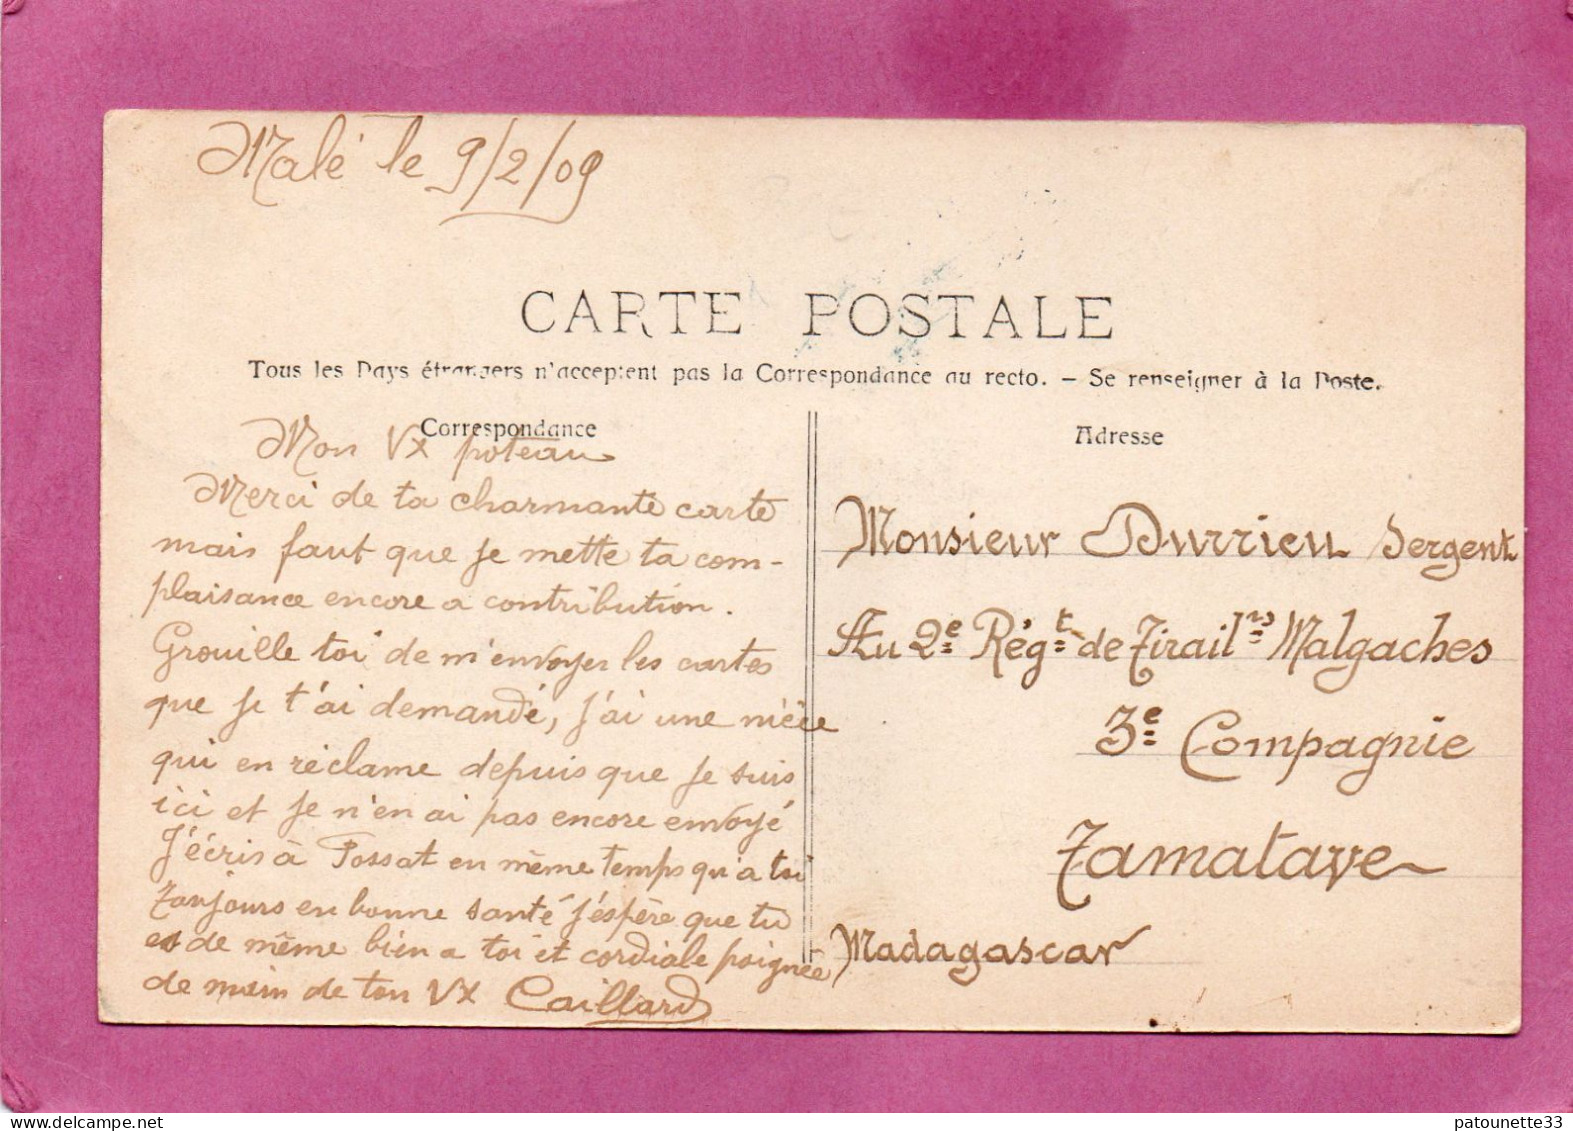 Malé le 9/2/09
CARTE POSTALE
Tous les Pays étrangers n'acceptent pas la Correspondance au recto. – Se renseigner à la Poste.
Correspondance
Mon Vx poteau
Merci de ta charmante carte
mais faut que je mette ta com-
plaisance encore a contribution.
Grouille toi de m'envoyer les cartes
que je t'ai demandé, j'ai une nièce
qui en réclame depuis que je suis
ici et je n'en ai pas encore envoyé
J'écris à Fossat en même temps qu'a toi
Toujours en bonne santé j'éspère que tu
es de même bien a toi et cordiale poignée
de main de ton Vx Caillard
Adresse
Monsieur Durrieu Sergent
Au 2e Régt de Tirailrs Malgaches
3e Compagnie
Tamatave
Madagascar
patounette33
delcampe.net